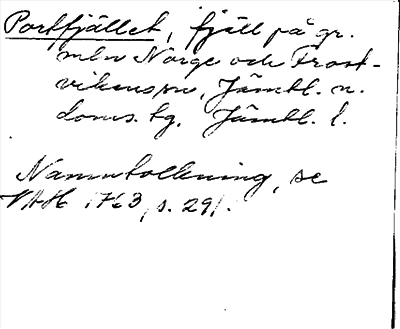 Portfjället, fjäll på gr.
mln Norge och Frost-
vikens sn, Jämtl. n.
doms. tg. Jämtl. l.
Namntolkning, se
VAH 1763, s. 291.